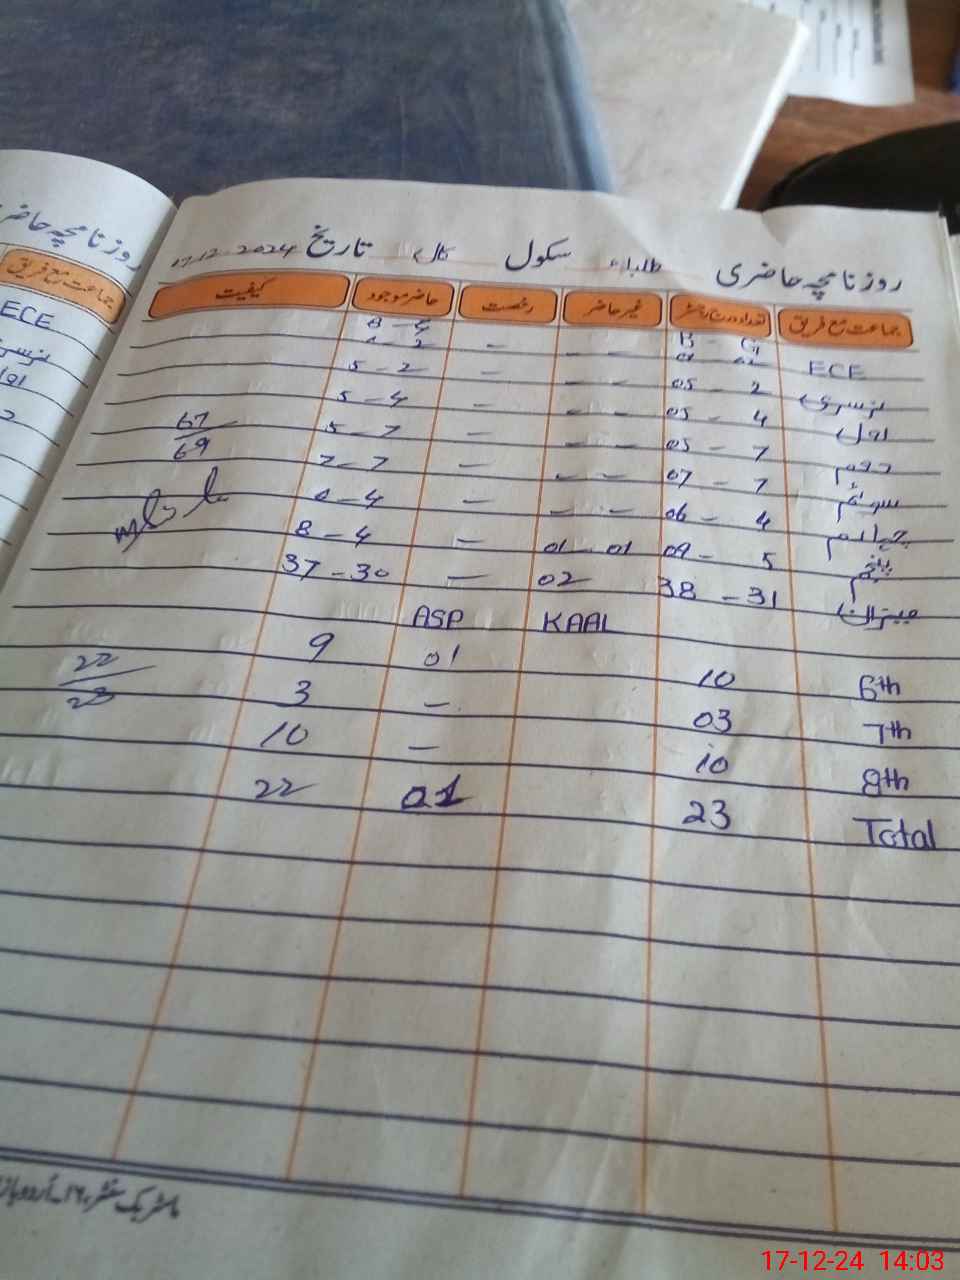 روزنامچہ حاضری طلباء سکول تاریخ 17.12.2024
جماعت مع فریق غیر حاضر رخصت حاضر موجود کیفیت
B - G
ECE 01 - 02 - - -
نرسری 05 - 2 - - - 5 - 2
اول 05 - 4 - - - 5 - 4
دوم 05 - 7 - - - 5 - 7 67
69
سوئم 07 - 7 - - - 7 - 7
چہارم 06 - 4 - - - 6 - 4
پنجم 09 - 5 01 - 01 - 8 - 4
میزان 38 - 31 02 - 37 - 30
KAAL ASP
6th 10 01 9
7th 03 - 3 22
23
8th 10 - 10
Total 23 01 22
روزنامچہ حاضری
جماعت مع فریق
ECE
نرسری
اول
17-12-24 14:03